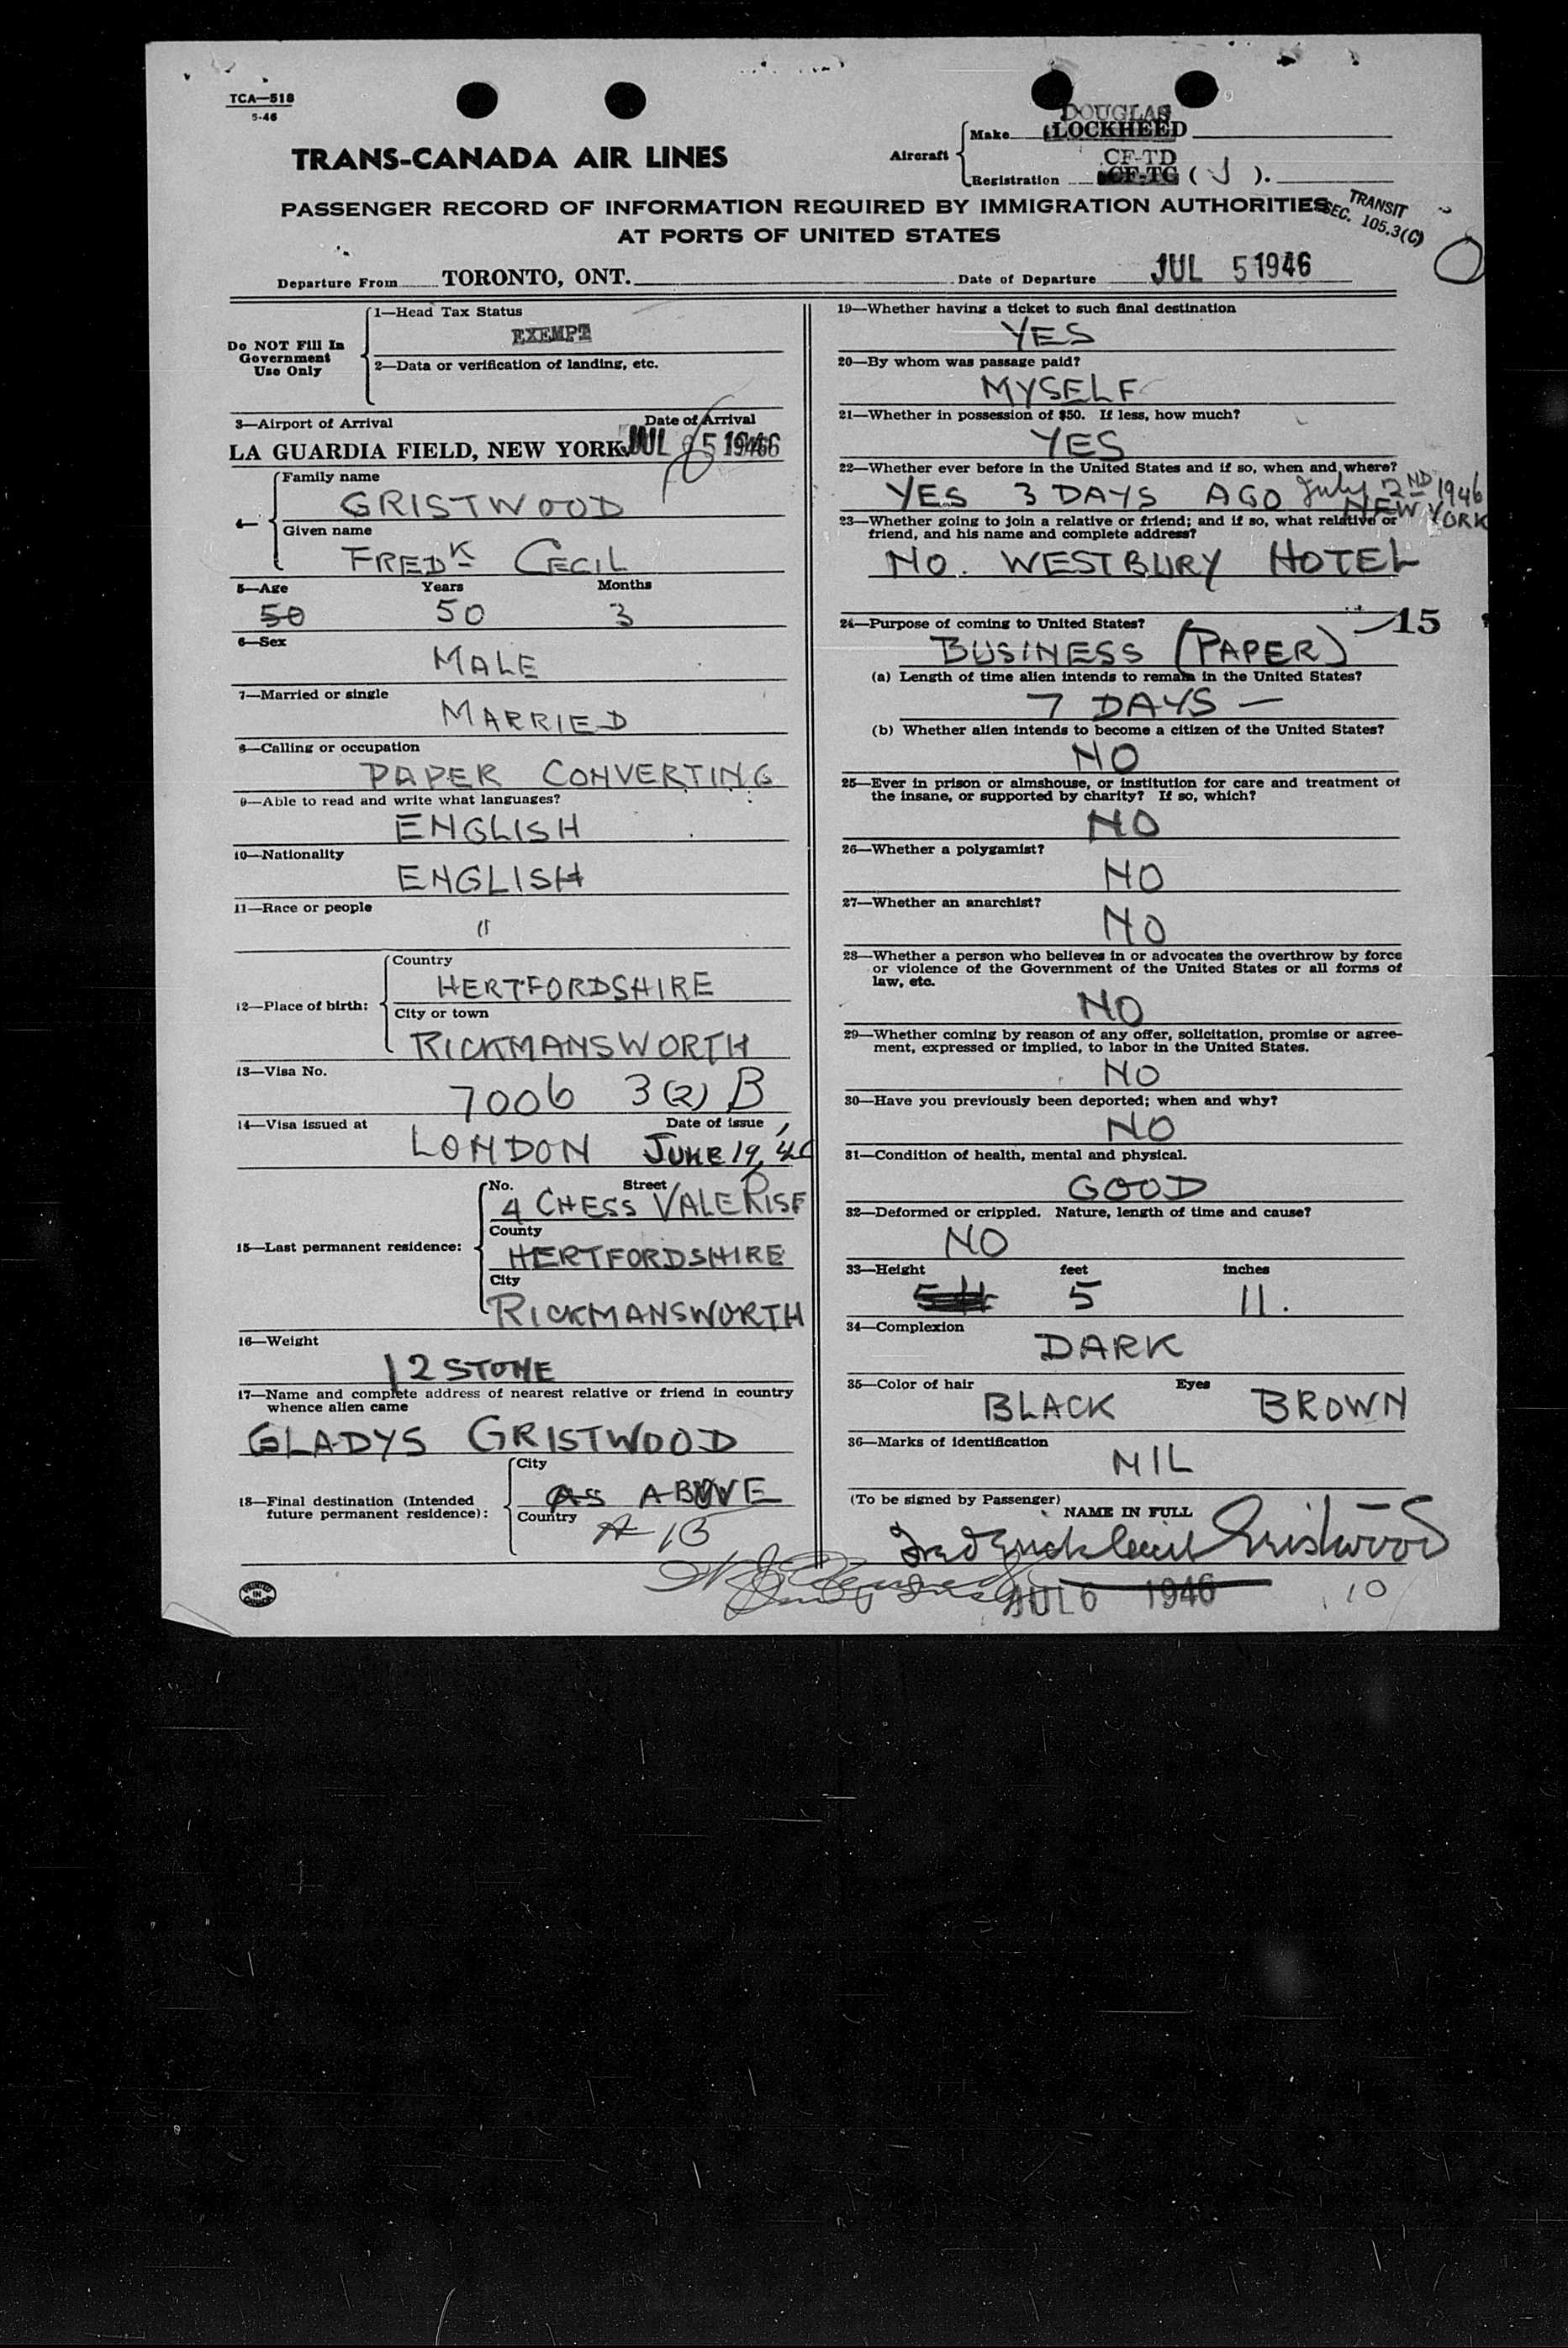 TCA—518
5-46
TRANS-CANADA AIR LINES
Aircraft
Make
DOUGLAS
LOCKHEED
Registration
CF-TD
CF-TG ( J ).
PASSENGER RECORD OF INFORMATION REQUIRED BY IMMIGRATION AUTHORITIES
AT PORTS OF UNITED STATES
TRANSIT
SEC. 105.3(C)
Departure From TORONTO, ONT. Date of Departure JUL 5 1946
Do NOT Fill In
Government
Use Only
1—Head Tax Status
EXEMPT
2—Data or verification of landing, etc.
3—Airport of Arrival Date of Arrival
LA GUARDIA FIELD, NEW YORK. JUL 5 1946
4—
Family name
GRISTWOOD
Given name
FREDK CECIL
5—Age Years Months
50 50 3
6—Sex
MALE
7—Married or single
MARRIED
8—Calling or occupation
PAPER CONVERTING
9—Able to read and write what languages?
ENGLISH
10—Nationality
ENGLISH
11—Race or people
"
12—Place of birth:
Country
HERTFORDSHIRE
City or town
RICKMANSWORTH
13—Visa No.
7006 3(2) B
14—Visa issued at Date of issue
LONDON JUNE 19, 46
15—Last permanent residence:
No. Street
4 CHESS VALE RISE
County
HERTFORDSHIRE
City
RICKMANSWORTH
16—Weight
12 STONE
17—Name and complete address of nearest relative or friend in country
whence alien came
GLADYS GRISTWOOD
18—Final destination (Intended
future permanent residence):
City
AS ABOVE
Country
PRINTED
IN
CANADA
19—Whether having a ticket to such final destination
YES
20—By whom was passage paid?
MYSELF
21—Whether in possession of $50. If less, how much?
YES
22—Whether ever before in the United States and if so, when and where?
YES 3 DAYS AGO July 2ND 1946
NEW YORK
23—Whether going to join a relative or friend; and if so, what relative or
friend, and his name and complete address?
NO. WESTBURY HOTEL
15
24—Purpose of coming to United States?
BUSINESS (PAPER)
(a) Length of time alien intends to remain in the United States?
7 DAYS —
(b) Whether alien intends to become a citizen of the United States?
NO
25—Ever in prison or almshouse, or institution for care and treatment of
the insane, or supported by charity? If so, which?
NO
26—Whether a polygamist?
NO
27—Whether an anarchist?
NO
28—Whether a person who believes in or advocates the overthrow by force
or violence of the Government of the United States or all forms of
law, etc.
NO
29—Whether coming by reason of any offer, solicitation, promise or agree-
ment, expressed or implied, to labor in the United States.
NO
30—Have you previously been deported; when and why?
NO
31—Condition of health, mental and physical.
GOOD
32—Deformed or crippled. Nature, length of time and cause?
NO
33—Height feet inches
5 11.
34—Complexion
DARK
35—Color of hair Eyes
BLACK BROWN
36—Marks of identification
NIL
(To be signed by Passenger)
NAME IN FULL
Frederick Cecil Gristwood
JUL 6 1946
10